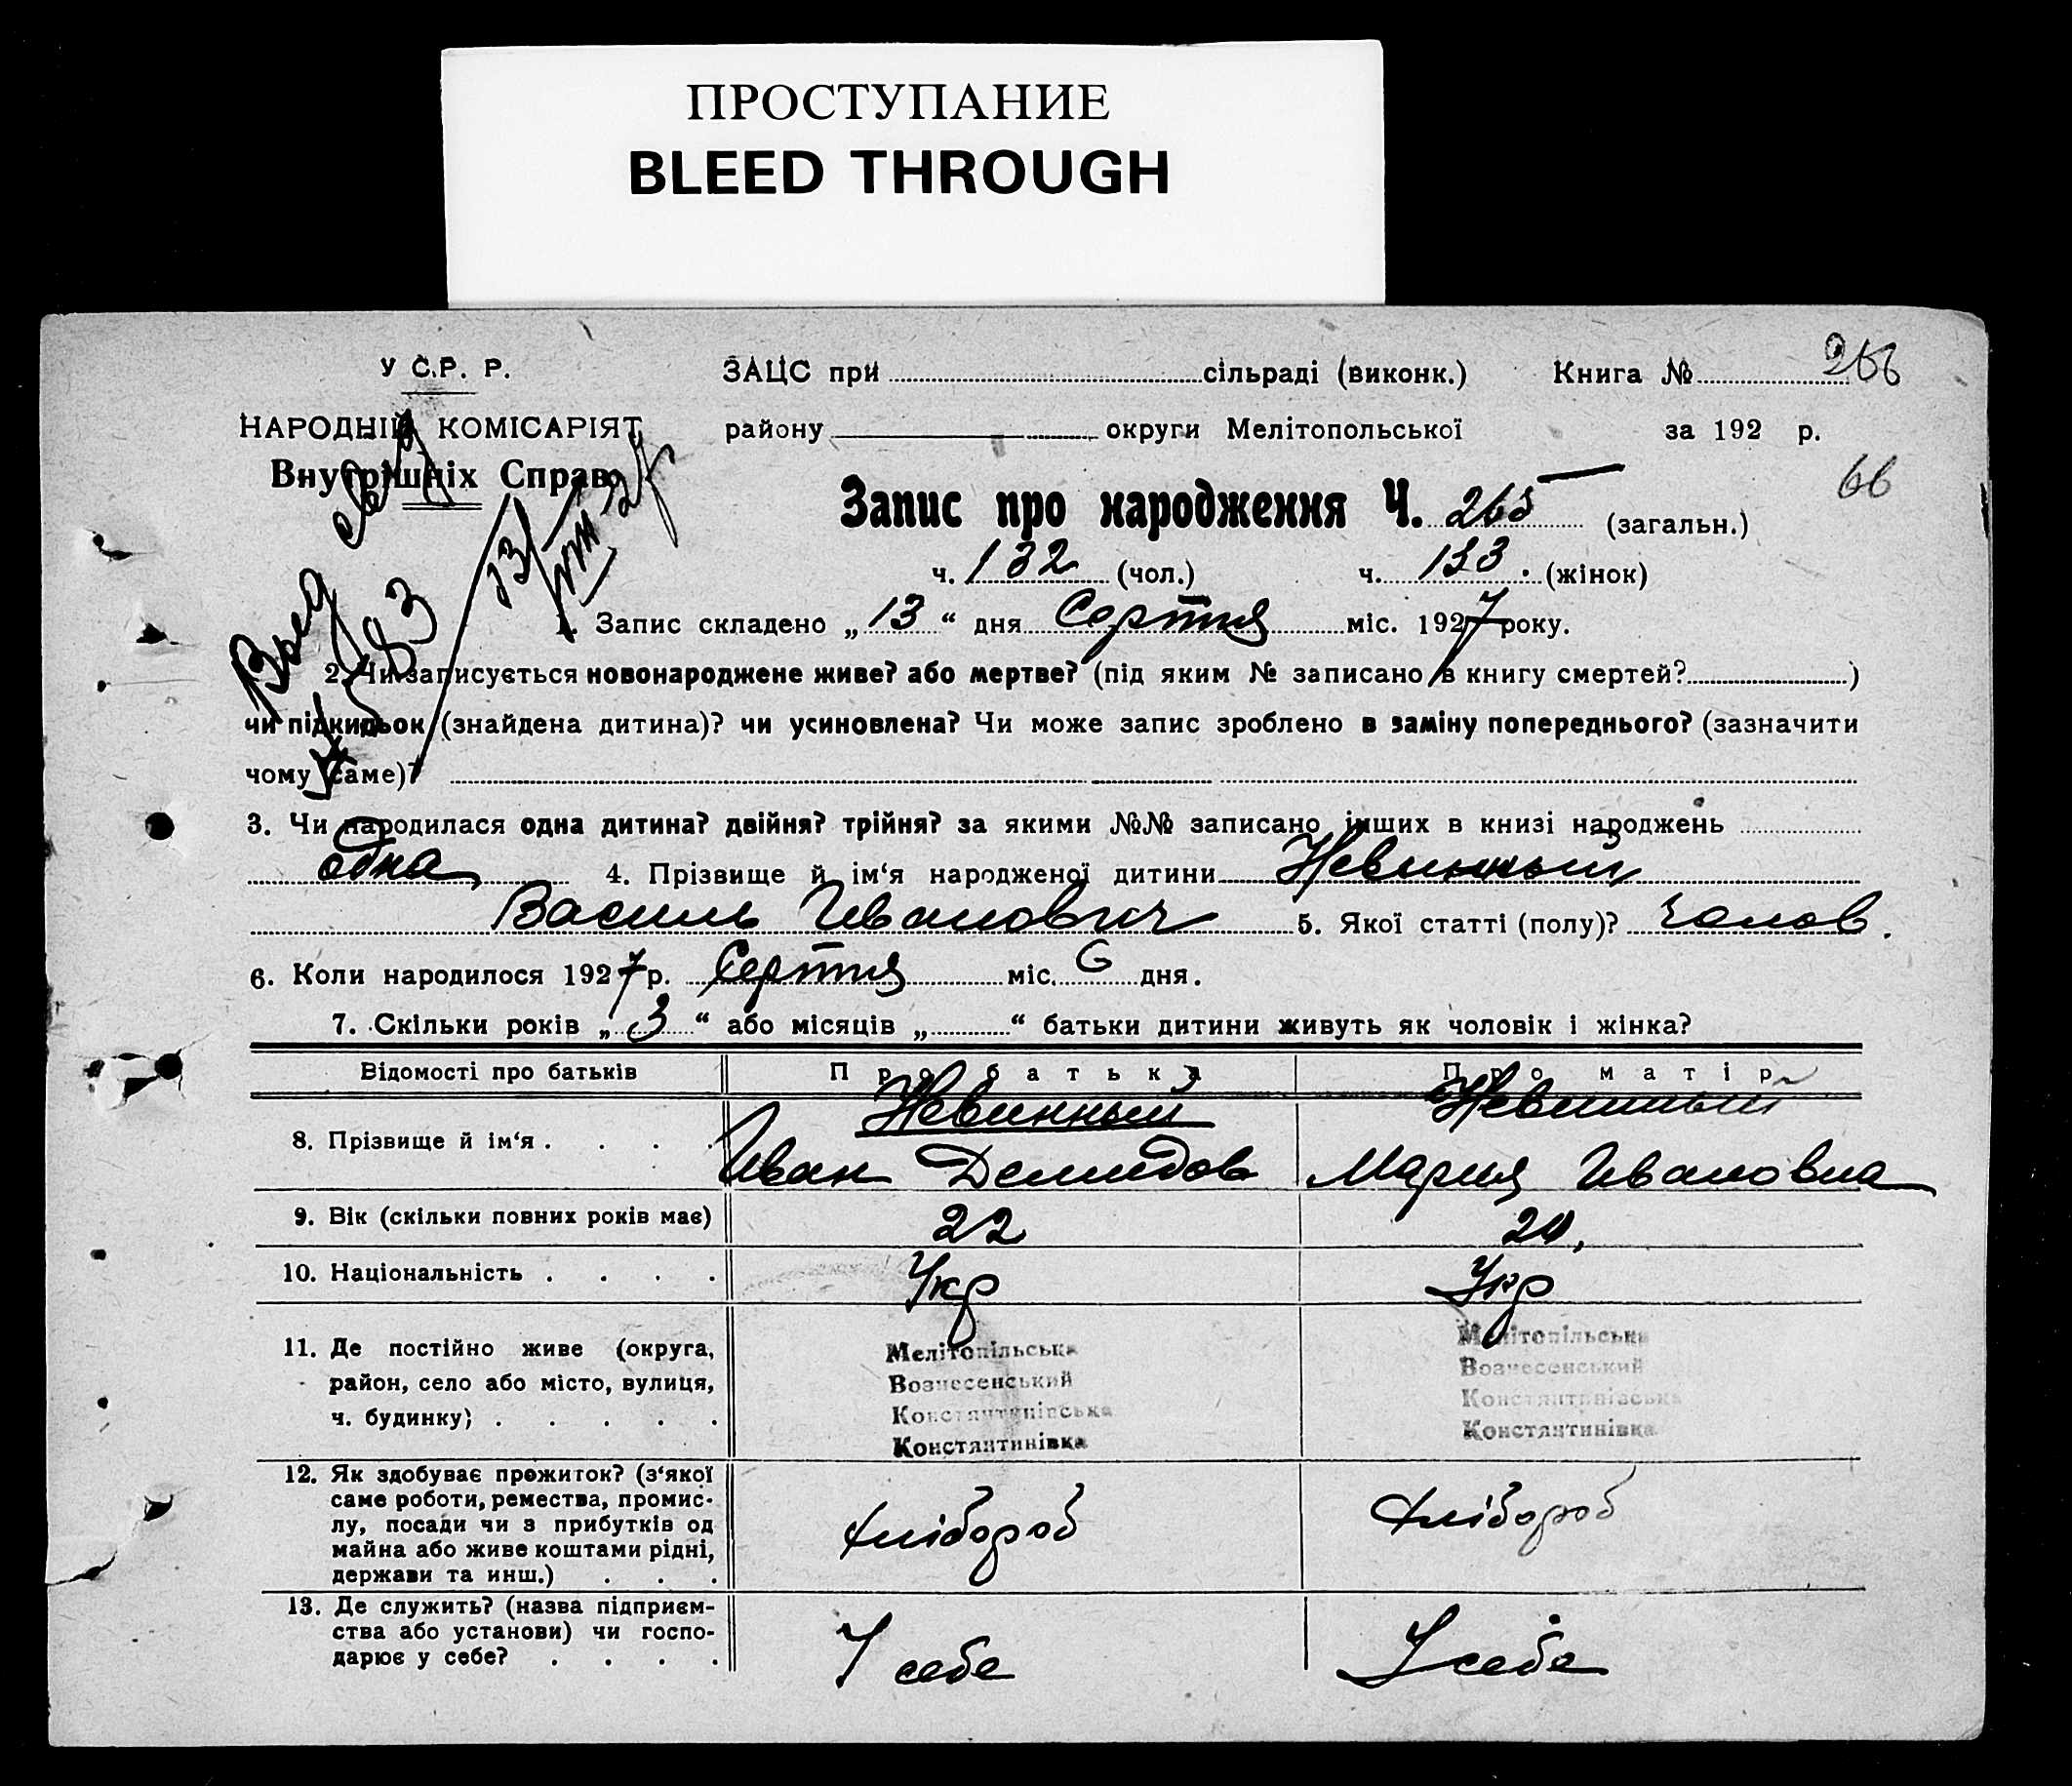 ПРОСТУПАНИЕ
BLEED THROUGH
У С.Р. Р.
ЗАЦС при сільраді (виконк.) Книга № 266
НАРОДНІЙ КОМІСАРІЯТ
району округи Мелітопольської за 192 р.
Внутрішніх Справ
66
Запис про народження Ч. 265 (загальн.)
ч. 132 (чол.) ч. 133 (жінок)
1. Запис складено „ 13 “ дня Серпня міс. 1927 року.
2. Чи записується новонароджене живе? або мертве? (під яким № записано в книгу смертей? )
чи підкидьок (знайдена дитина)? чи усиновлена? Чи може запис зроблено в заміну попереднього? (зазначити
чому саме)?
3. Чи народилася одна дитина? двійня? трійня? за якими №№ записано інших в книзі народжень
одна 4. Прізвище й ім‘я народженої дитини Невинный
Василь Иванович 5. Якої статті (полу)? Чолов.
6. Коли народилося 1927 р. Серпня міс. 6 дня.
7. Скільки років „ 3 “ або місяців „ “ батьки дитини живуть як чоловік і жінка?
Відомості про батьків Про батька Про матір
Невинный Невинный
8. Прізвище й ім‘я . . . . Иван Демидов Мария Ивановна
9. Вік (скільки повних років має) 22 20,
10. Національність . . . . Укр Укр
11. Де постійно живе (округа, Мелітопільська Мелітопільська
район, село або місто, вулиця, Вознесенський Вознесенський
ч. будинку) . . . . . Константинівська Константинівська
Константинівка Константинівка
12. Як здобуває прожиток? (з‘якої
саме роботи, ремества, промис-
лу, посади чи з прибутків од Хлібороб Хлібороб
майна або живе коштами рідні,
держави та инш.) . . .
13. Де служить? (назва підприєм-
ства або установи) чи госпо- У себе У себе
дарює у себе? . . . .